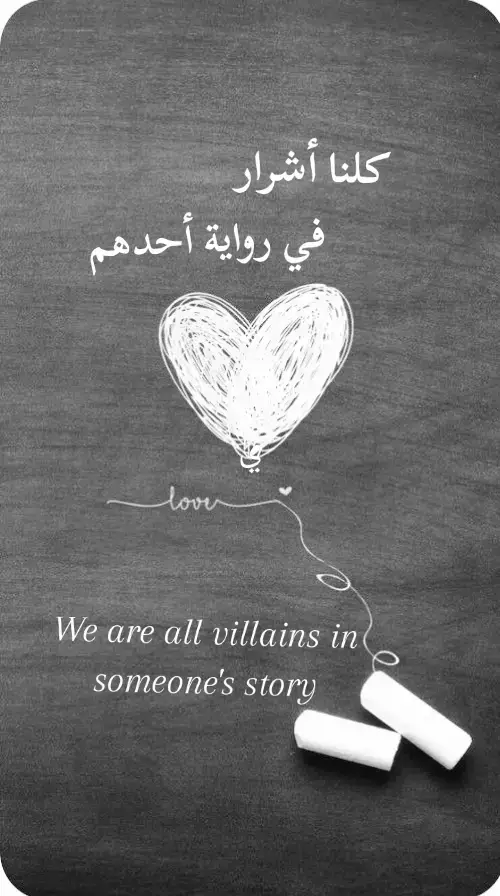 كلنا أشرار
في رواية أحدهم
love
We are all villains in
someone's story